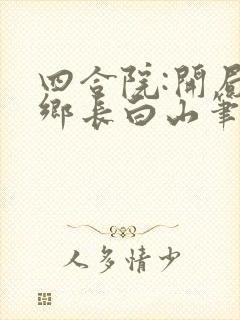 四合院:開局
鄉長白山筆
人多情少